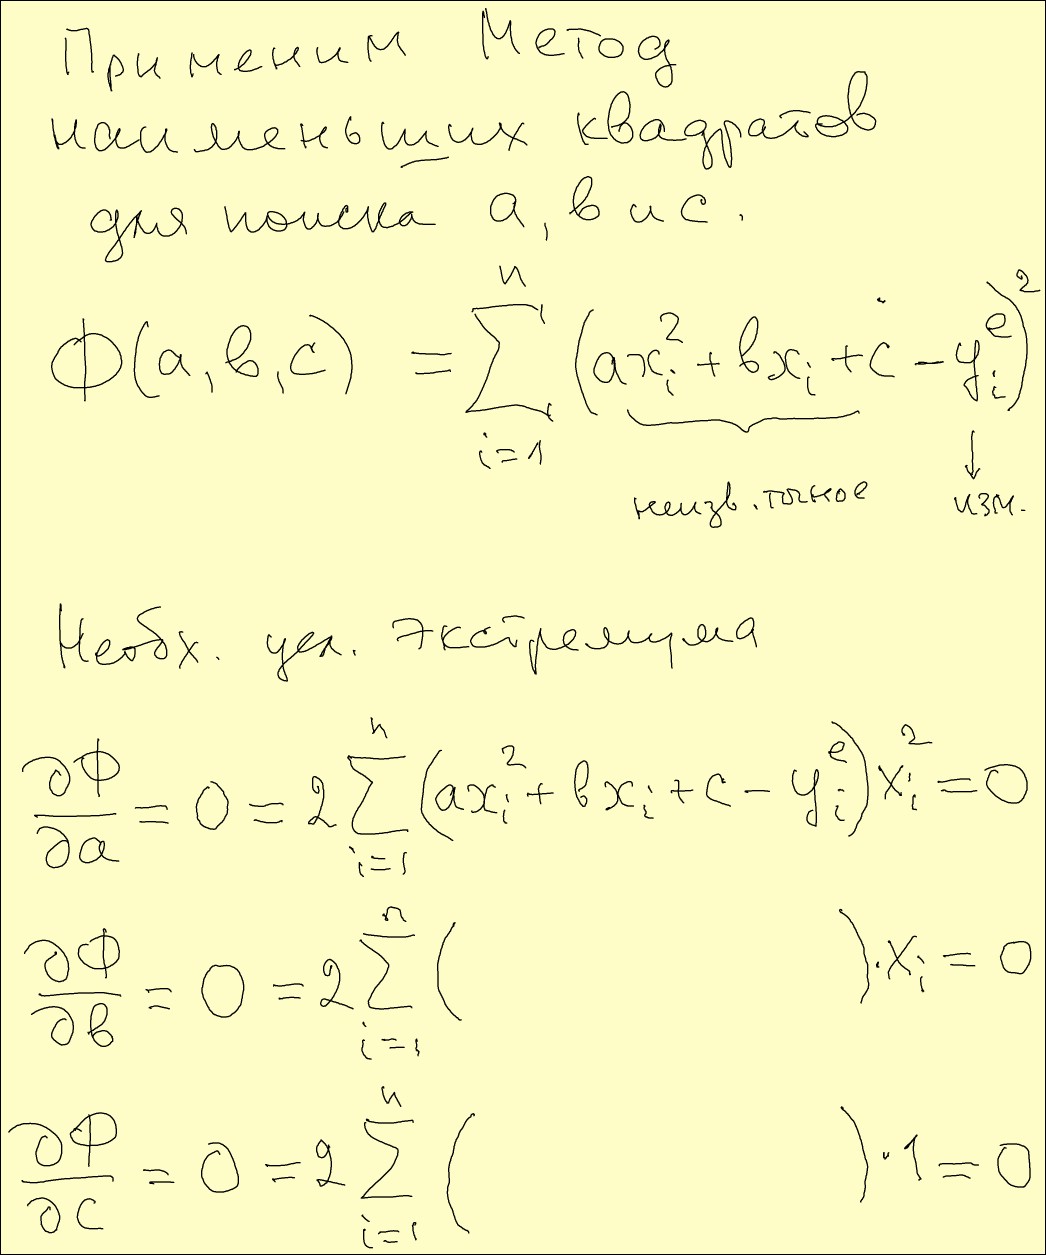 Применим Метод
наименьших квадратов
для поиска а, в и с.
Ф(а, в, с) = ∑_{i=1}^{n} (ax_i^2 + вx_i + c - y_i^e)^2
неизв. точное изм.
Необх. усл. экстремума
∂Ф/∂a = 0 = 2 ∑_{i=1}^{n} (ax_i^2 + вx_i + c - y_i^e) x_i^2 = 0
∂Ф/∂в = 0 = 2 ∑_{i=1}^{n} ( ) · x_i = 0
∂Ф/∂c = 0 = 2 ∑_{i=1}^{n} ( ) · 1 = 0